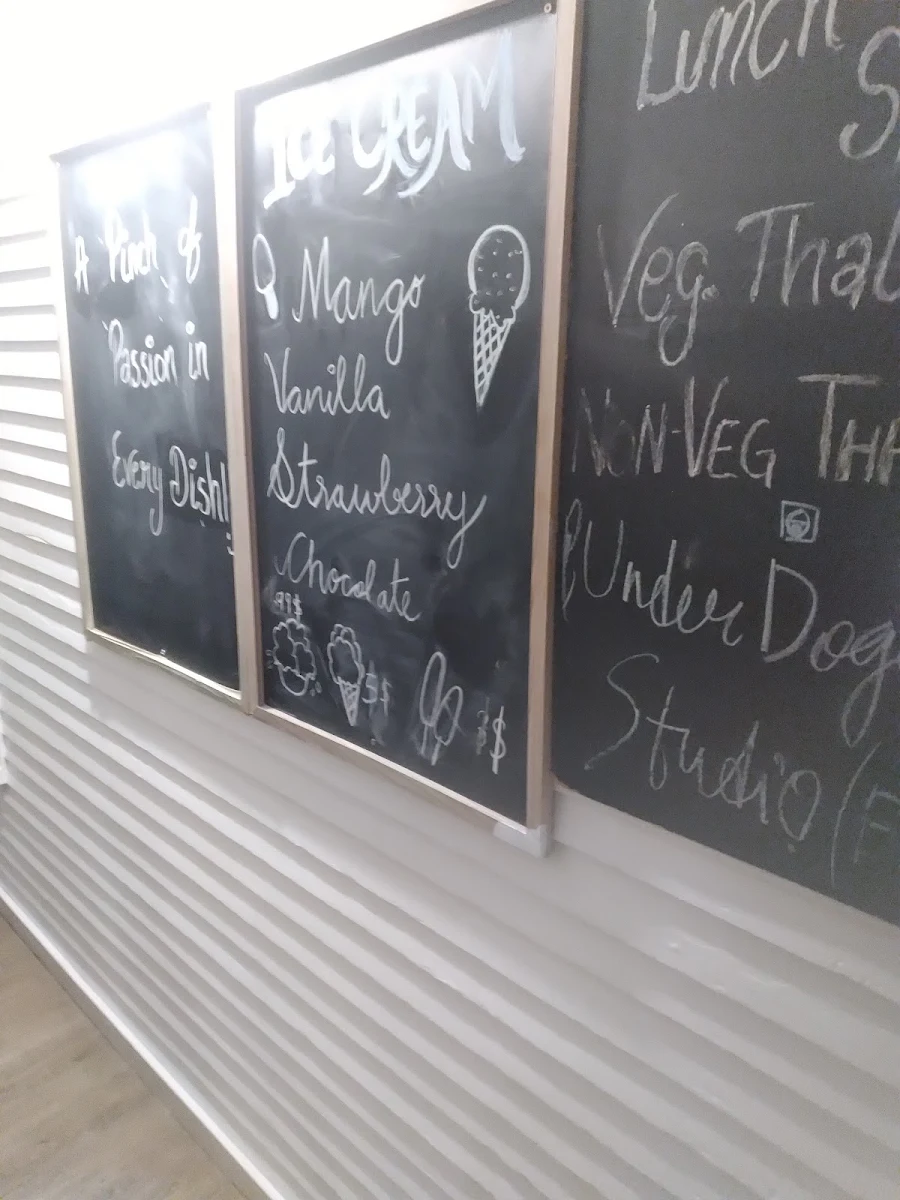 A Pinch of
Passion in
Every Dish!
ICE CREAM
Mango
Vanilla
Strawberry
Chocolate
.99$
Lunch
Veg. Thal
NON-VEG THA
(Under Dog
Studio (F